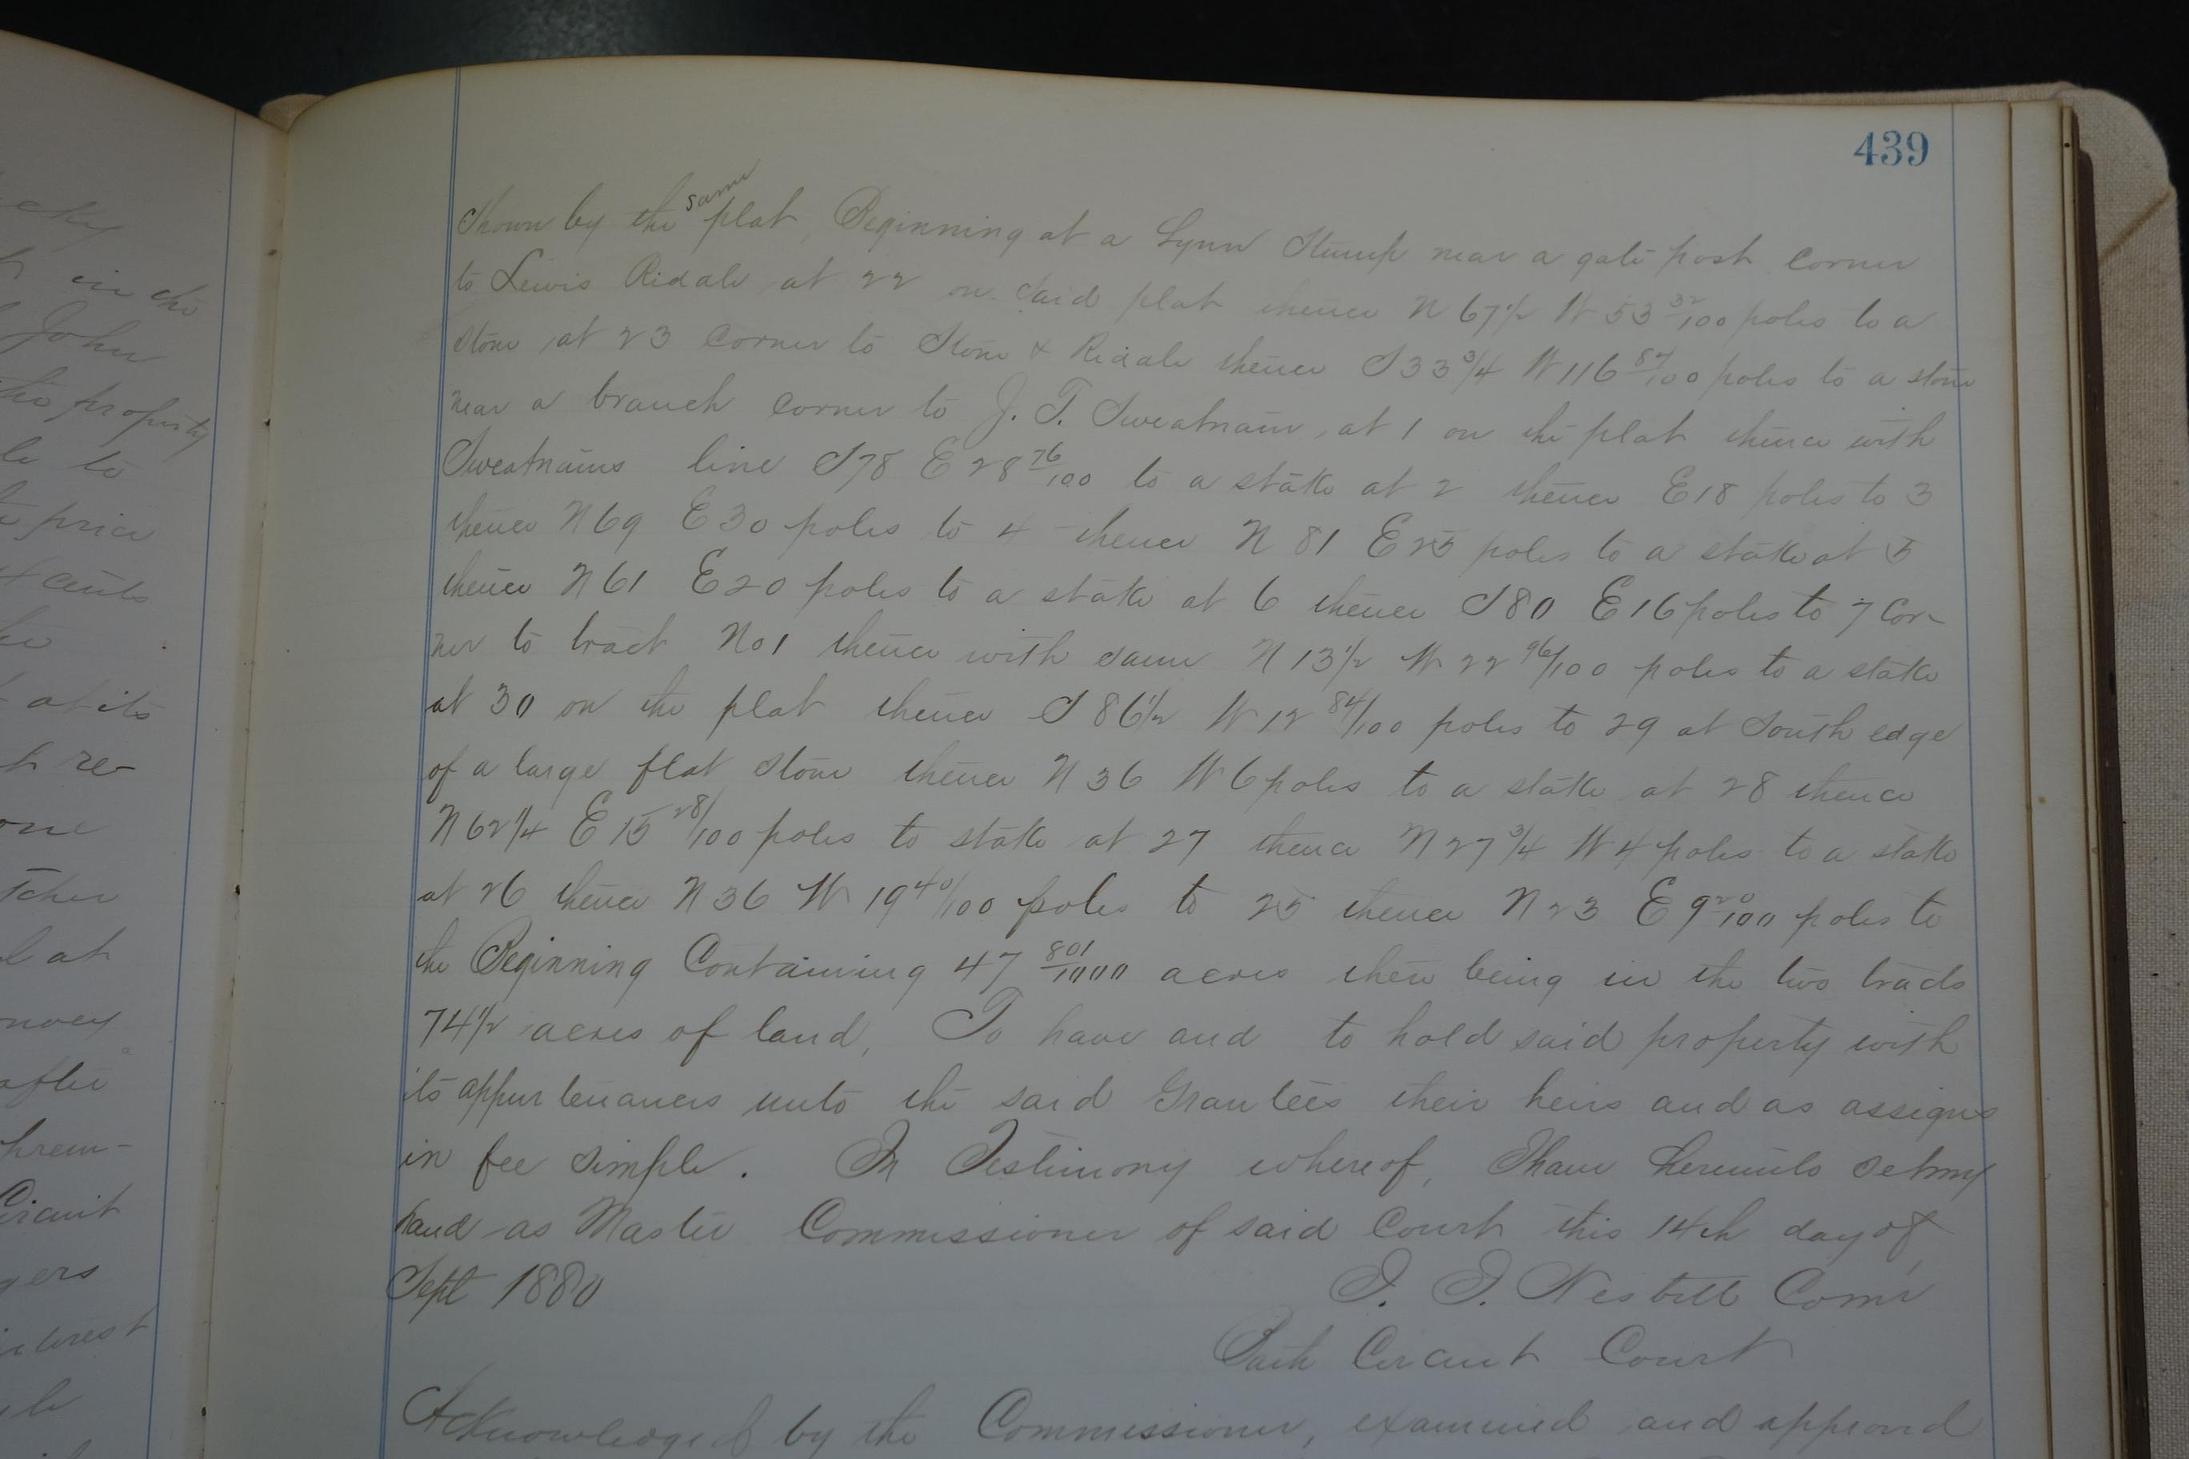 439
Shown by the same plat, Beginning at a Lynn Stump near a gate post corner
to Lewis Ridale at 22 on said plat thence N 67 1/2 W 53 32/100 poles to a
stone at 23 corner to Stone & Ridale thence S 33 3/4 W 116 84/100 poles to a stone
near a branch corner to J. T. Sweatnam, at 1 on the plat thence with
Sweatnams line S 78 E 28 76/100 to a stake at 2 thence E 18 poles to 3
thence N 69 E 30 poles to 4 thence N 81 E 25 poles to a stake at 5
thence N 61 E 20 poles to a stake at 6 thence S 80 E 16 poles to 7 Cor-
ner to tract No 1 thence with same N 13 1/2 W 22 96/100 poles to a stake
at 30 on the plat thence S 86 1/2 W 12 84/100 poles to 29 at South edge
of a large flat stone thence N 36 W 6 poles to a stake at 28 thence
N 62 1/4 E 15 28/100 poles to stake at 27 thence N 27 3/4 W 4 poles to a stake
at 26 thence N 36 W 19 40/100 poles to 25 thence N 23 E 9 20/100 poles to
the Beginning Containing 47 801/1000 acres there being in the two tracts
74 1/2 acres of land, To have and to hold said property with
its appurtenances unto the said Grantees their heirs and as assigns
in fee simple. In Testimony whereof, I have hereunto set my
hand as Master Commissioner of said Court this 14th day of
Sept 1880
J. J. Nesbitt Comr
Bath Circuit Court
Acknowledged by the Commissioner, examined and approved
in the
John
the property
to
price
cents
at its
re-
one
at
after
Circuit